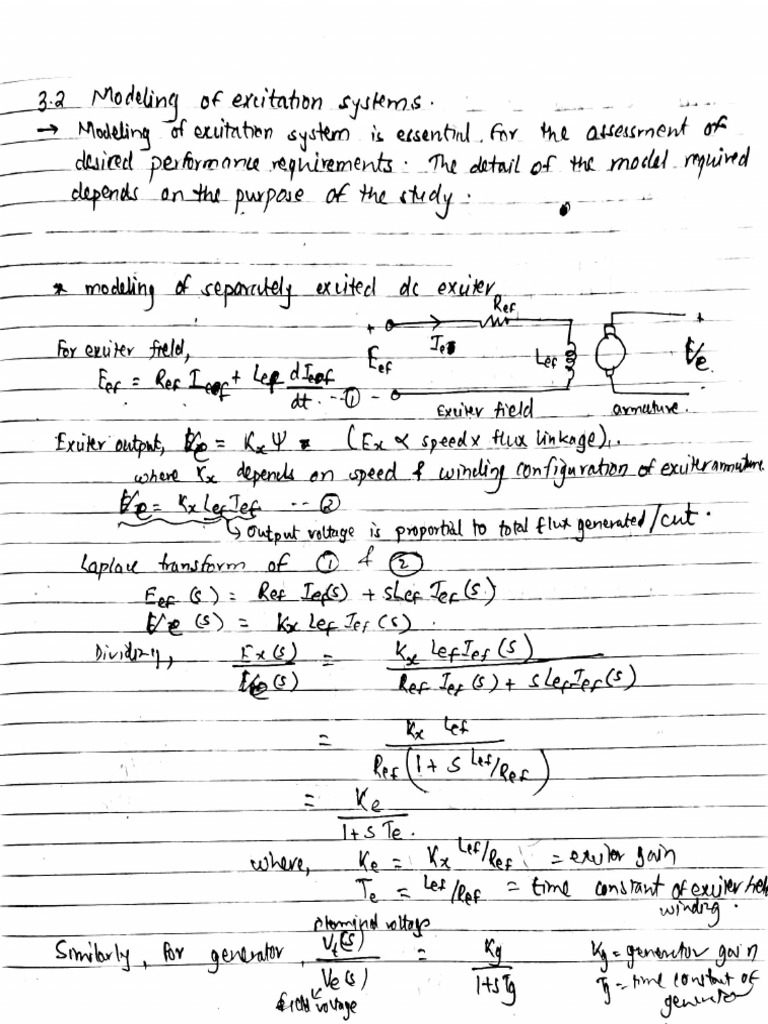 3.2 Modeling of excitation systems.
→ Modeling of excitation system is essential for the assessment of
desired performance requirements. The detail of the model required
depends on the purpose of the study.
* modeling of separately excited dc exciter
Ref
+ Ief Lef +
For exciter field, Eef Ve
Eef = Ref Ief + Lef dIef/dt --- ① -
Exciter field armature.
Exciter output, Ve = Kx Ψ (Ex ∝ speed x flux linkage).
where Kx depends on speed & winding configuration of exciter armature.
Ve = Kx Lef Ief --- ②
↳ output voltage is proportial to total flux generated/cut.
Laplace transform of ① & ②
Eef (s) = Ref Ief(s) + sLef Ief(s)
Ve (s) = Kx Lef Ief (s).
Dividing, Ex(s)/(s) = Kx Lef Ief (s) / Ref Ief (s) + s Lef Ief (s)
= Kx Lef / Ref (1 + s Lef/Ref)
= Ke / 1+sTe.
where, Ke = Kx Lef/Ref = exciter gain
Te = Lef/Ref = time constant of exciter field
winding.
terminal voltage
Similarly, for generator, Vt(s)/Ve(s) = Kg/1+sTg Kg = generator gain
Tg = time constant of
field voltage generator